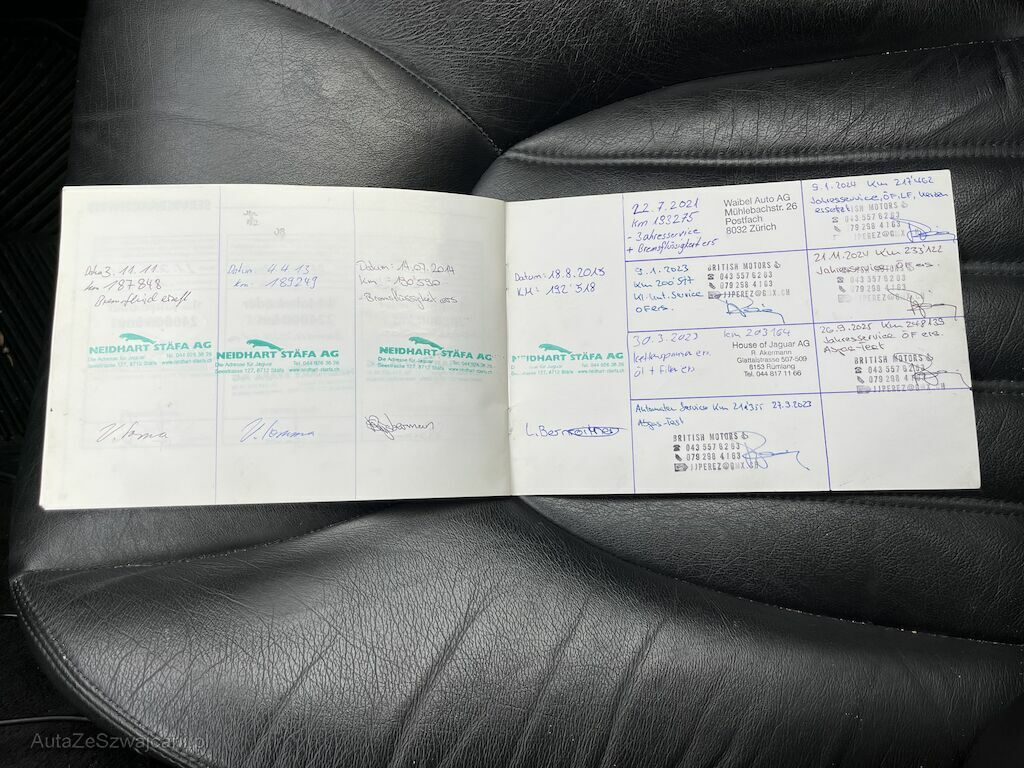 11.11
km 187'848
NEIDHART STÄFA AG
Die Adresse für Jaguar Tel. 044 926 36 29
Seestrasse 127, 8712 Stäfa www.neidhart-staefa.ch
Datum: 4.4.13
km: 189249
NEIDHART STÄFA AG
Die Adresse für Jaguar Tel. 044 926 36 29
Seestrasse 127, 8712 Stäfa www.neidhart-staefa.ch
Datum: 14.07.2014
Km:
NEIDHART STÄFA AG
Die Adresse für Jaguar
Seestrasse 127, 8712 Stäfa
Datum: 18.8.2015
KM = 192'518
NEIDHART STÄFA AG
Die Adresse für Jaguar Tel. 044 926 36 29
Seestrasse 127, 8712 Stäfa www.neidhart-staefa.ch
22.7.2021
Km 193275
- Jahresservice
+ Bremsflüssigkeit
Waibel Auto AG
Mühlebachstr. 26
Postfach
8032 Zürich
9.1.2023
Km 200'517
Kl. Unt. Service
ÖF ers.
BRITISH MOTORS
043 557 62 63
079 298 41 63
JJPEREZ@GMX.CH
30.3.2023 km 203164
öl + Filter en
House of Jaguar AG
R. Akermann
Glattalstrasse 507-509
8153 Rümlang
Tel. 044 817 11 66
Automaten Service Km 27.9.2023
Abgas-Test
BRITISH MOTORS
043 557 62 63
079 298 41 63
JJPEREZ@GMX.CH
9.1.2024 Km 217'462
Jahresservice, ÖF, LF, Kerzen
ersetzt
BRITISH MOTORS
043 557 62 63
079 298 41 63
JJPEREZ@GMX
21.11.2024 Km 233'122
Jahresservice ÖF ers.
043 557 62 63
079 298 41 63
26.9.2025 Km 248139
Jahresservice ÖF ers
Abgas-Test
BRITISH MOTORS
043 557 62 63
079 298 41 63
JJPEREZ@GMX.CH
AutaZeSzwajcarii.pl